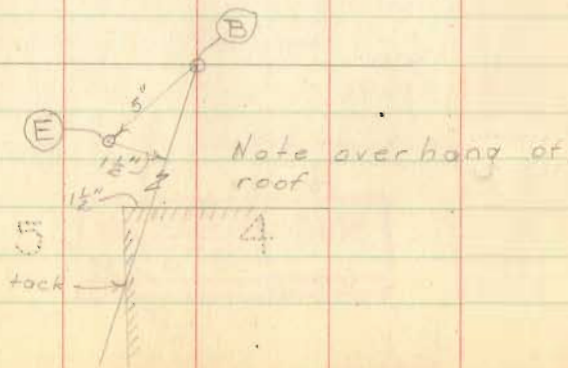 B
5"
E
1½"
Note overhang of
roof
1½"
5
4
tack